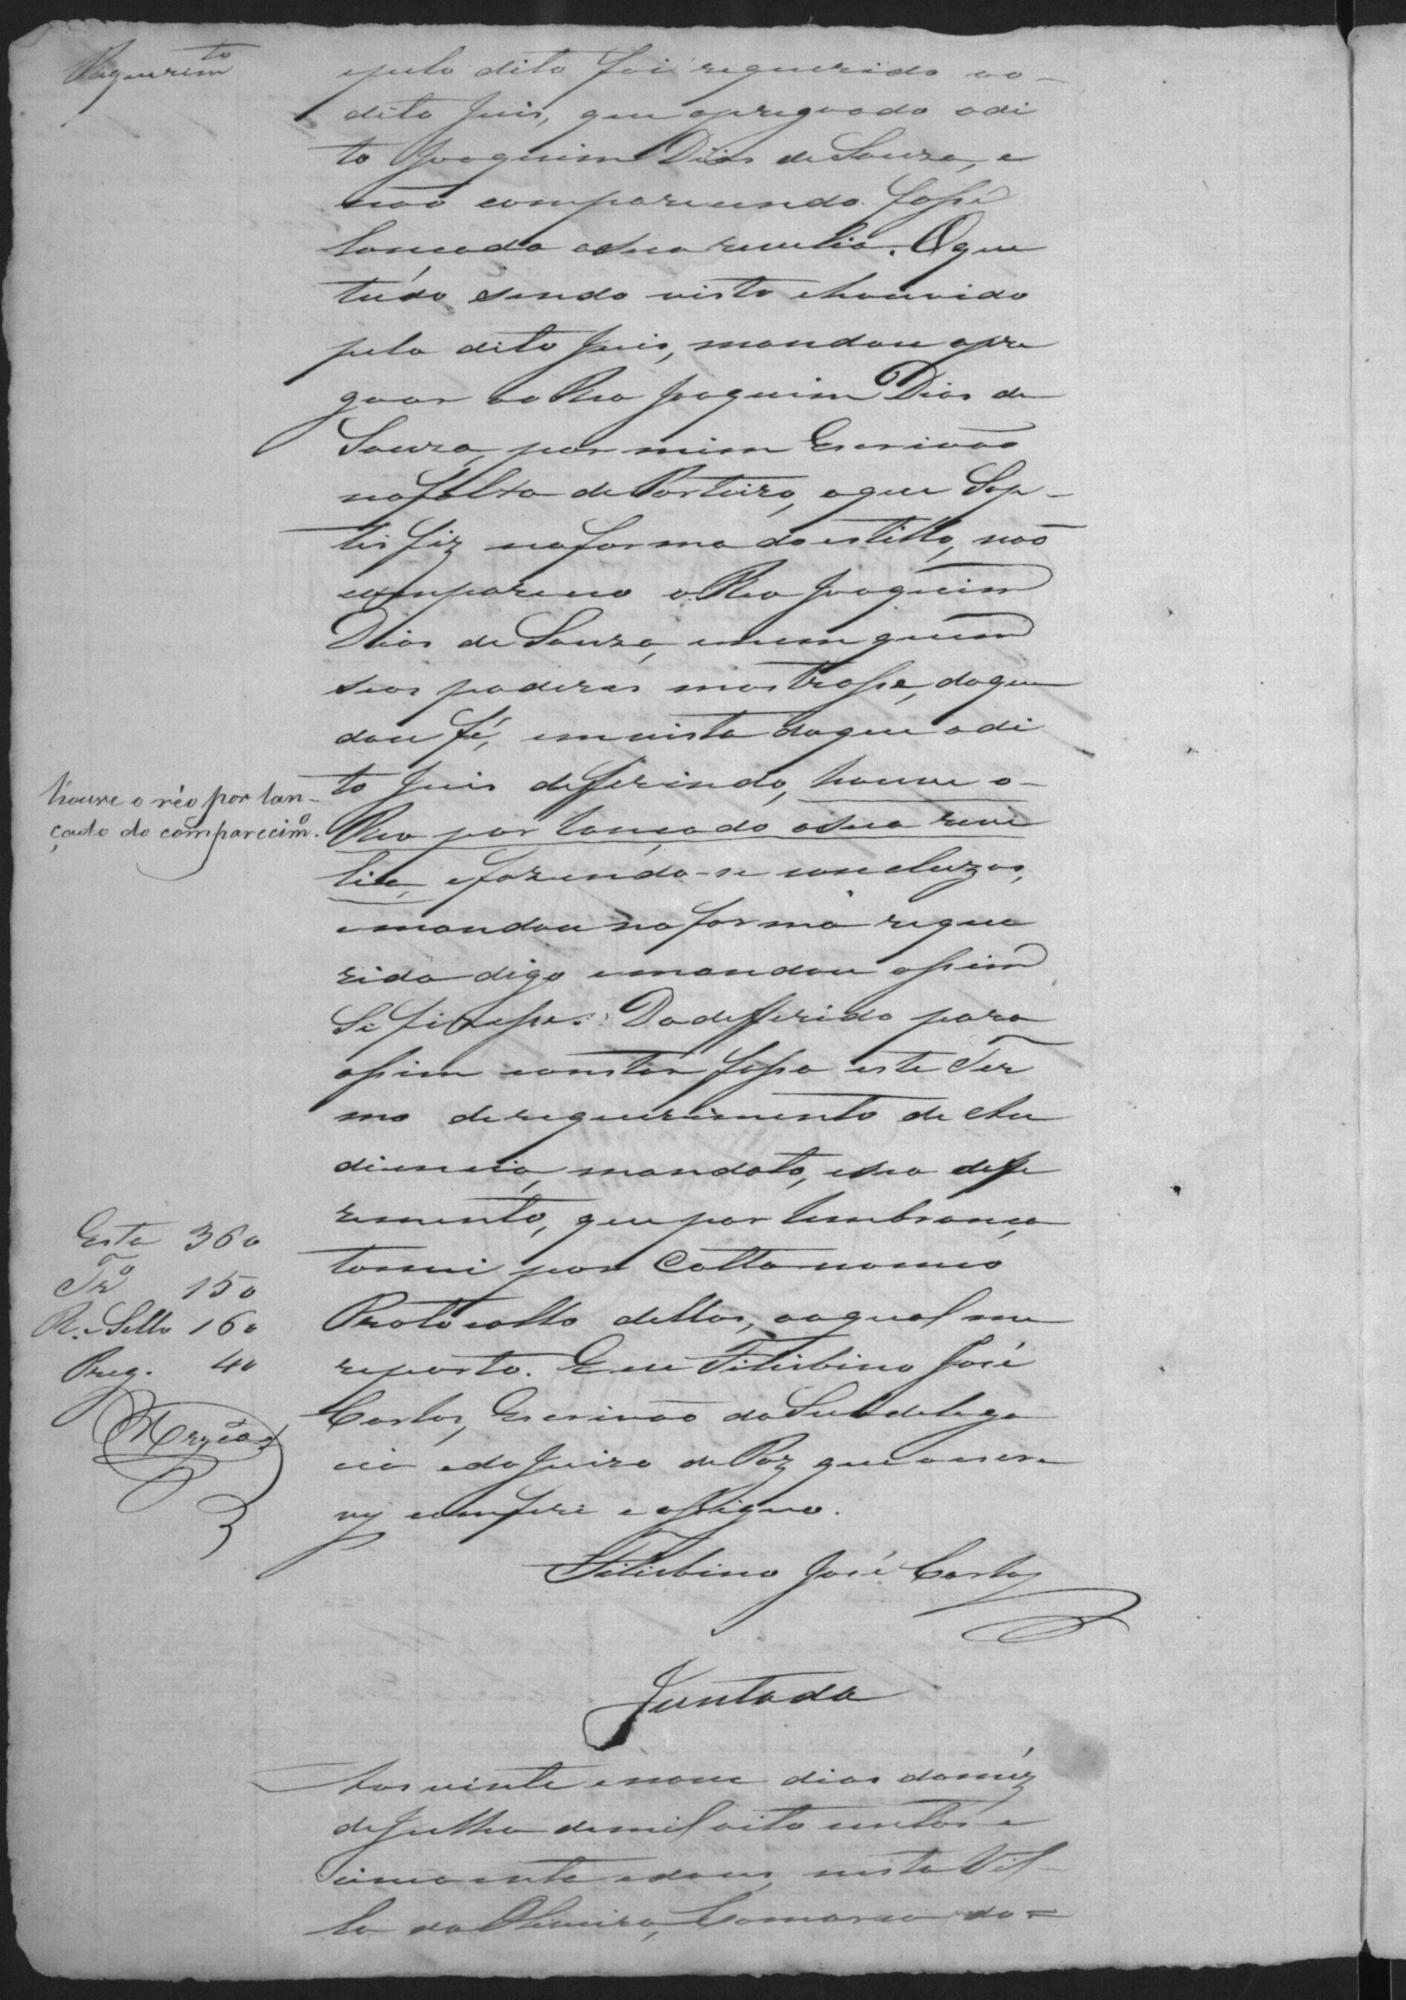 Requerim.to
epelo dito foi requerido ao
dito Juis, que apregoado odi
to Joaquim Dias de Souza, e
não comparecendo fosse
lançado asua revelia. Oque
tudo sendo visto ehouvido
pelo dito Juis, mandou apre
goar ao Reo Joaquim Dias de
Souza, por mim Escrivão
nafalta de Porteiro, oque Sap-
tisfiz naforma do estillo, não
compareceo o Reo Joaquim
Dias de Souza, enem quem
seos poderes mostrasse, doque
dou fé, emvista doque odi
to Juis defferindo, houve o
Reo por lançado asua reve
lia, efazendo-se concluzos,
emandou na forma reque
rida digo emandou assim
Se fizesse. Dodefferido para
assim constar fasso este Ter
mo de requerimento de Au
diencia, mandato, eseo deffe
remento, que por lembrança
tomei por Cotta nomeo
Protocollo dellas, aoqual me
reporto. Eeu Felisbino José
Carlos, Escrivão da Subdelega
cia edo Juizo de Paz que o escre
vy comferi e assigno.
Felisbino José Carlos
houve o réo por lan-
çado do comparecim.o
Esta 360
Tr.o 150
R. e Sello 160
Preg. 40
Juntada
Aos vinte enove dias domêz
de Julho demil oito centos e
cincoenta edous, nesta Vil-
la da Oliveira, Comarca do=